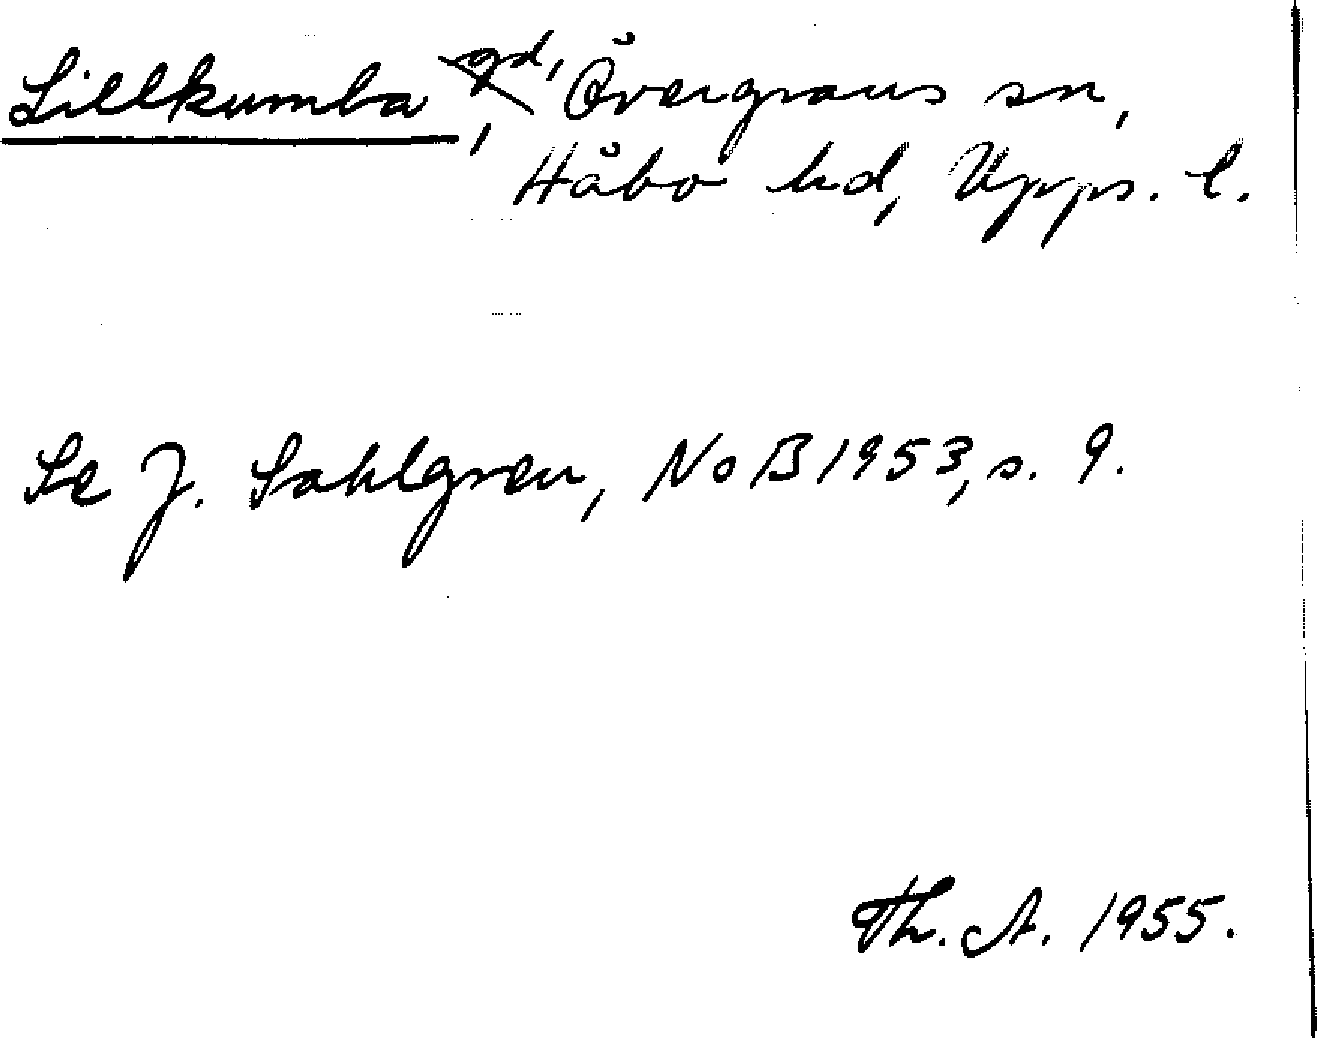 Lillkumba, gd, Övergrans sn,
Håbo hd, Upps. l.
Se J. Sahlgren, NoB 1953, s. 9.
Th. A. 1955.